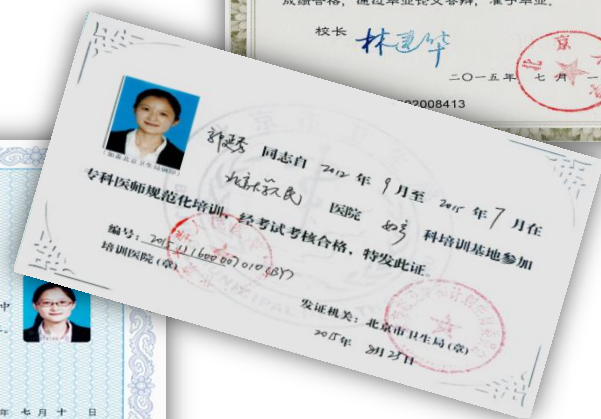 成绩合格，通过毕业论文答辩，准予毕业。
校长 林建华
二〇一五年 七月 一
02008413
同志自 2012 年 9 月至 2015 年 7 月在
北京大学人民 医院 妇产 科培训基地参加
专科医师规范化培训，经考试考核合格，特发此证。
编号：
培训医院（章）
发证机关：北京市卫生局（章）
2015年 8月25日
中
年 七 月 十 日